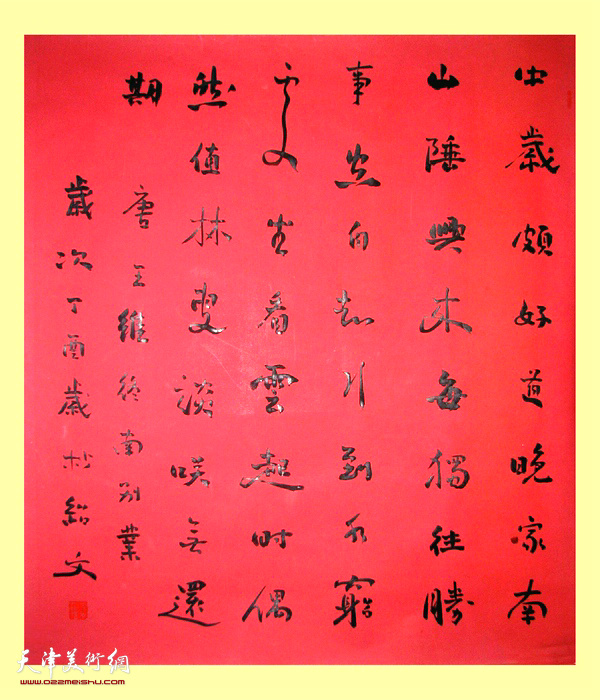 中歲頗好道晚家南
山陲興来每獨往勝
事空自知行到水窮
處坐看雲起时偶
然值林叟談咲無還
期
唐王維終南别業
歲次丁酉歲杪紹文
天津美術網
www.022meishu.com